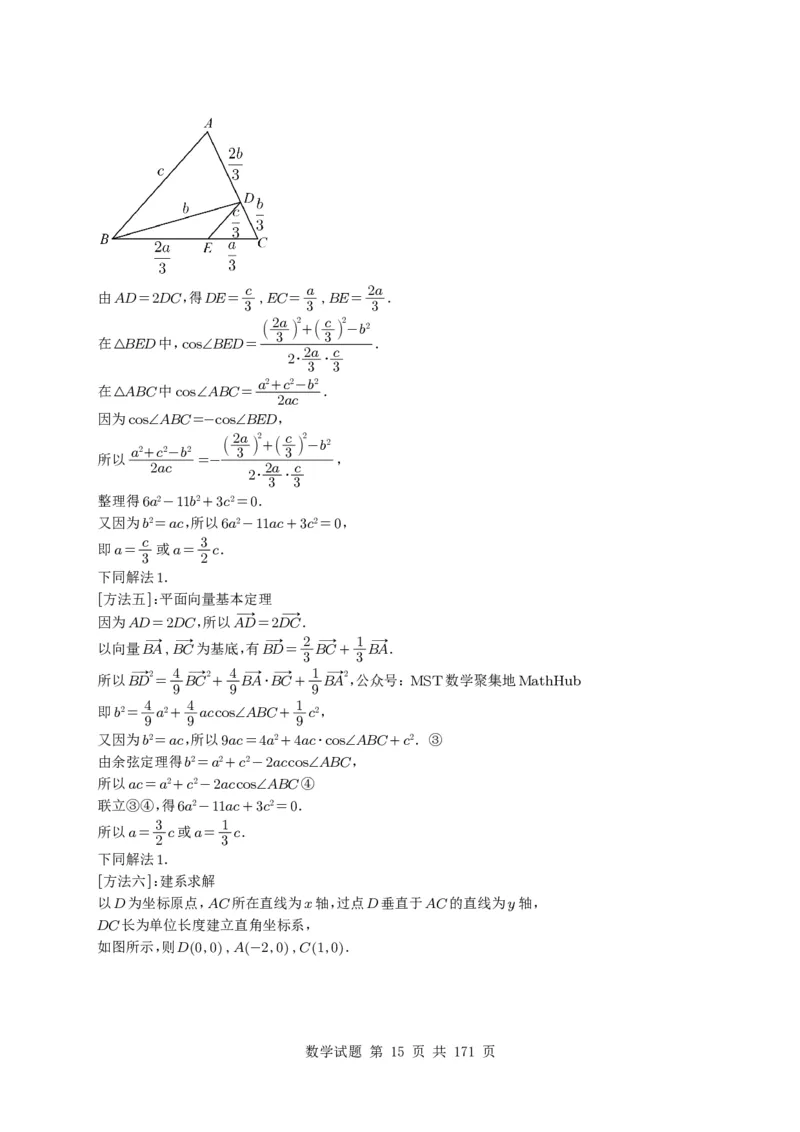 A
2b/3
c
D
b
b/3
c/3
B
E
C
2a/3
a/3
由AD=2DC,得DE=c/3,EC=a/3,BE=2a/3.
在△BED中,cos∠BED=((2a/3)²+(c/3)²−b²)/(2·2a/3·c/3).
在△ABC中cos∠ABC=(a²+c²−b²)/(2ac).
因为cos∠ABC=−cos∠BED,
所以(a²+c²−b²)/(2ac)=−((2a/3)²+(c/3)²−b²)/(2·2a/3·c/3),
整理得6a²−11b²+3c²=0.
又因为b²=ac,所以6a²−11ac+3c²=0,
即a=c/3或a=3/2c.
下同解法1.
[方法五]:平面向量基本定理
因为AD=2DC,所以AD→=2DC→.
以向量BA→,BC→为基底,有BD→=2/3BC→+1/3BA→.
所以BD→²=4/9BC→²+4/9BA→·BC→+1/9BA→²,公众号:MST数学聚集地MathHub
即b²=4/9a²+4/9accos∠ABC+1/9c²,
又因为b²=ac,所以9ac=4a²+4ac·cos∠ABC+c². ③
由余弦定理得b²=a²+c²−2accos∠ABC,
所以ac=a²+c²−2accos∠ABC④
联立③④,得6a²−11ac+3c²=0.
所以a=3/2c或a=1/3c.
下同解法1.
[方法六]:建系求解
以D为坐标原点,AC所在直线为x轴,过点D垂直于AC的直线为y轴,
DC长为单位长度建立直角坐标系,
如图所示,则D(0,0),A(−2,0),C(1,0).
数学试题 第 15 页 共 171 页